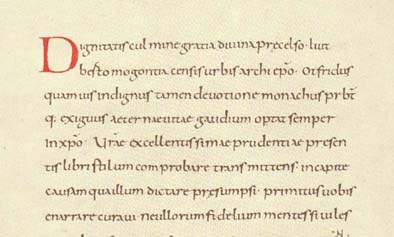 Dignitatis culmine gratia divina præcelso · liut
berto mogontiacensis urbis archiepo · Otfridus
quamuis indignus tamen devotione monachus prbt
q; exiguus aeternae uitae gaudium optat semper
in xpo · Urae excellentissimae prudentiae presen
tis libri stilum comprobare transmittens · in capite
causam qua illum dictare præsumpsi · primitus uobis
enarrare curavi · ne ullorum fidelium mentes si uiles